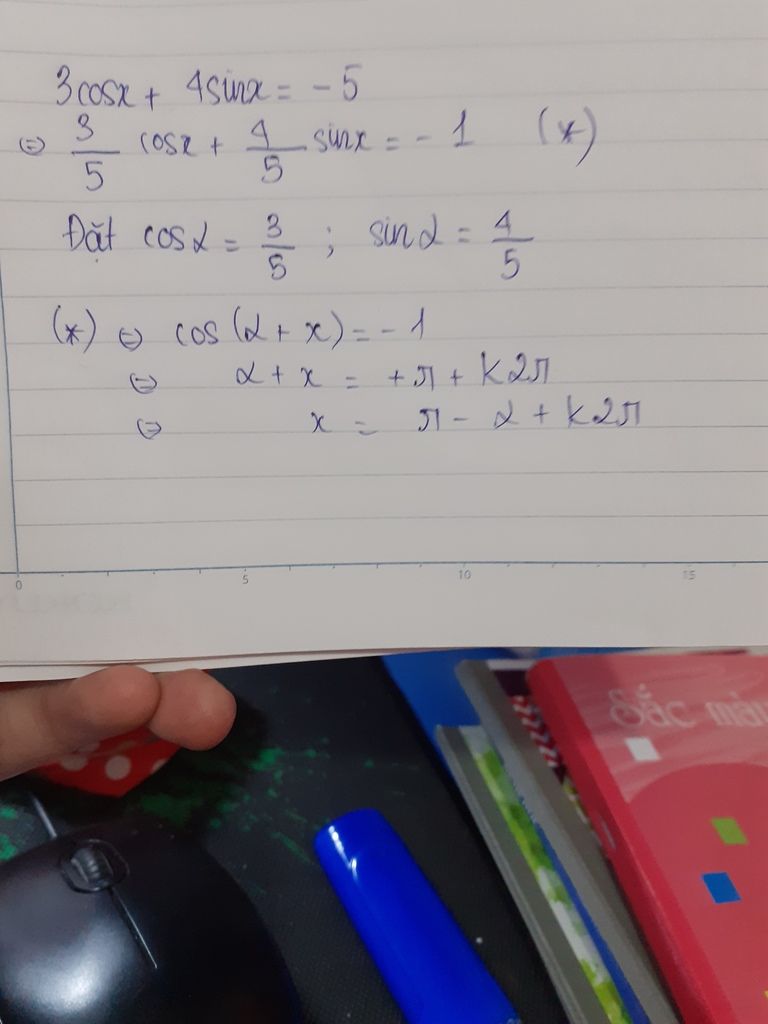 3cosx + 4sinx = - 5
⇔ 3/5 cosx + 4/5 sinx = - 1 (*)
Đặt cosα = 3/5 ; sinα = 4/5
(*) ⇔ cos(α + x) = - 1
⇔ α + x = +π + k2π
⇔ x = π - α + k2π
0 5 10 15
Sắc màu